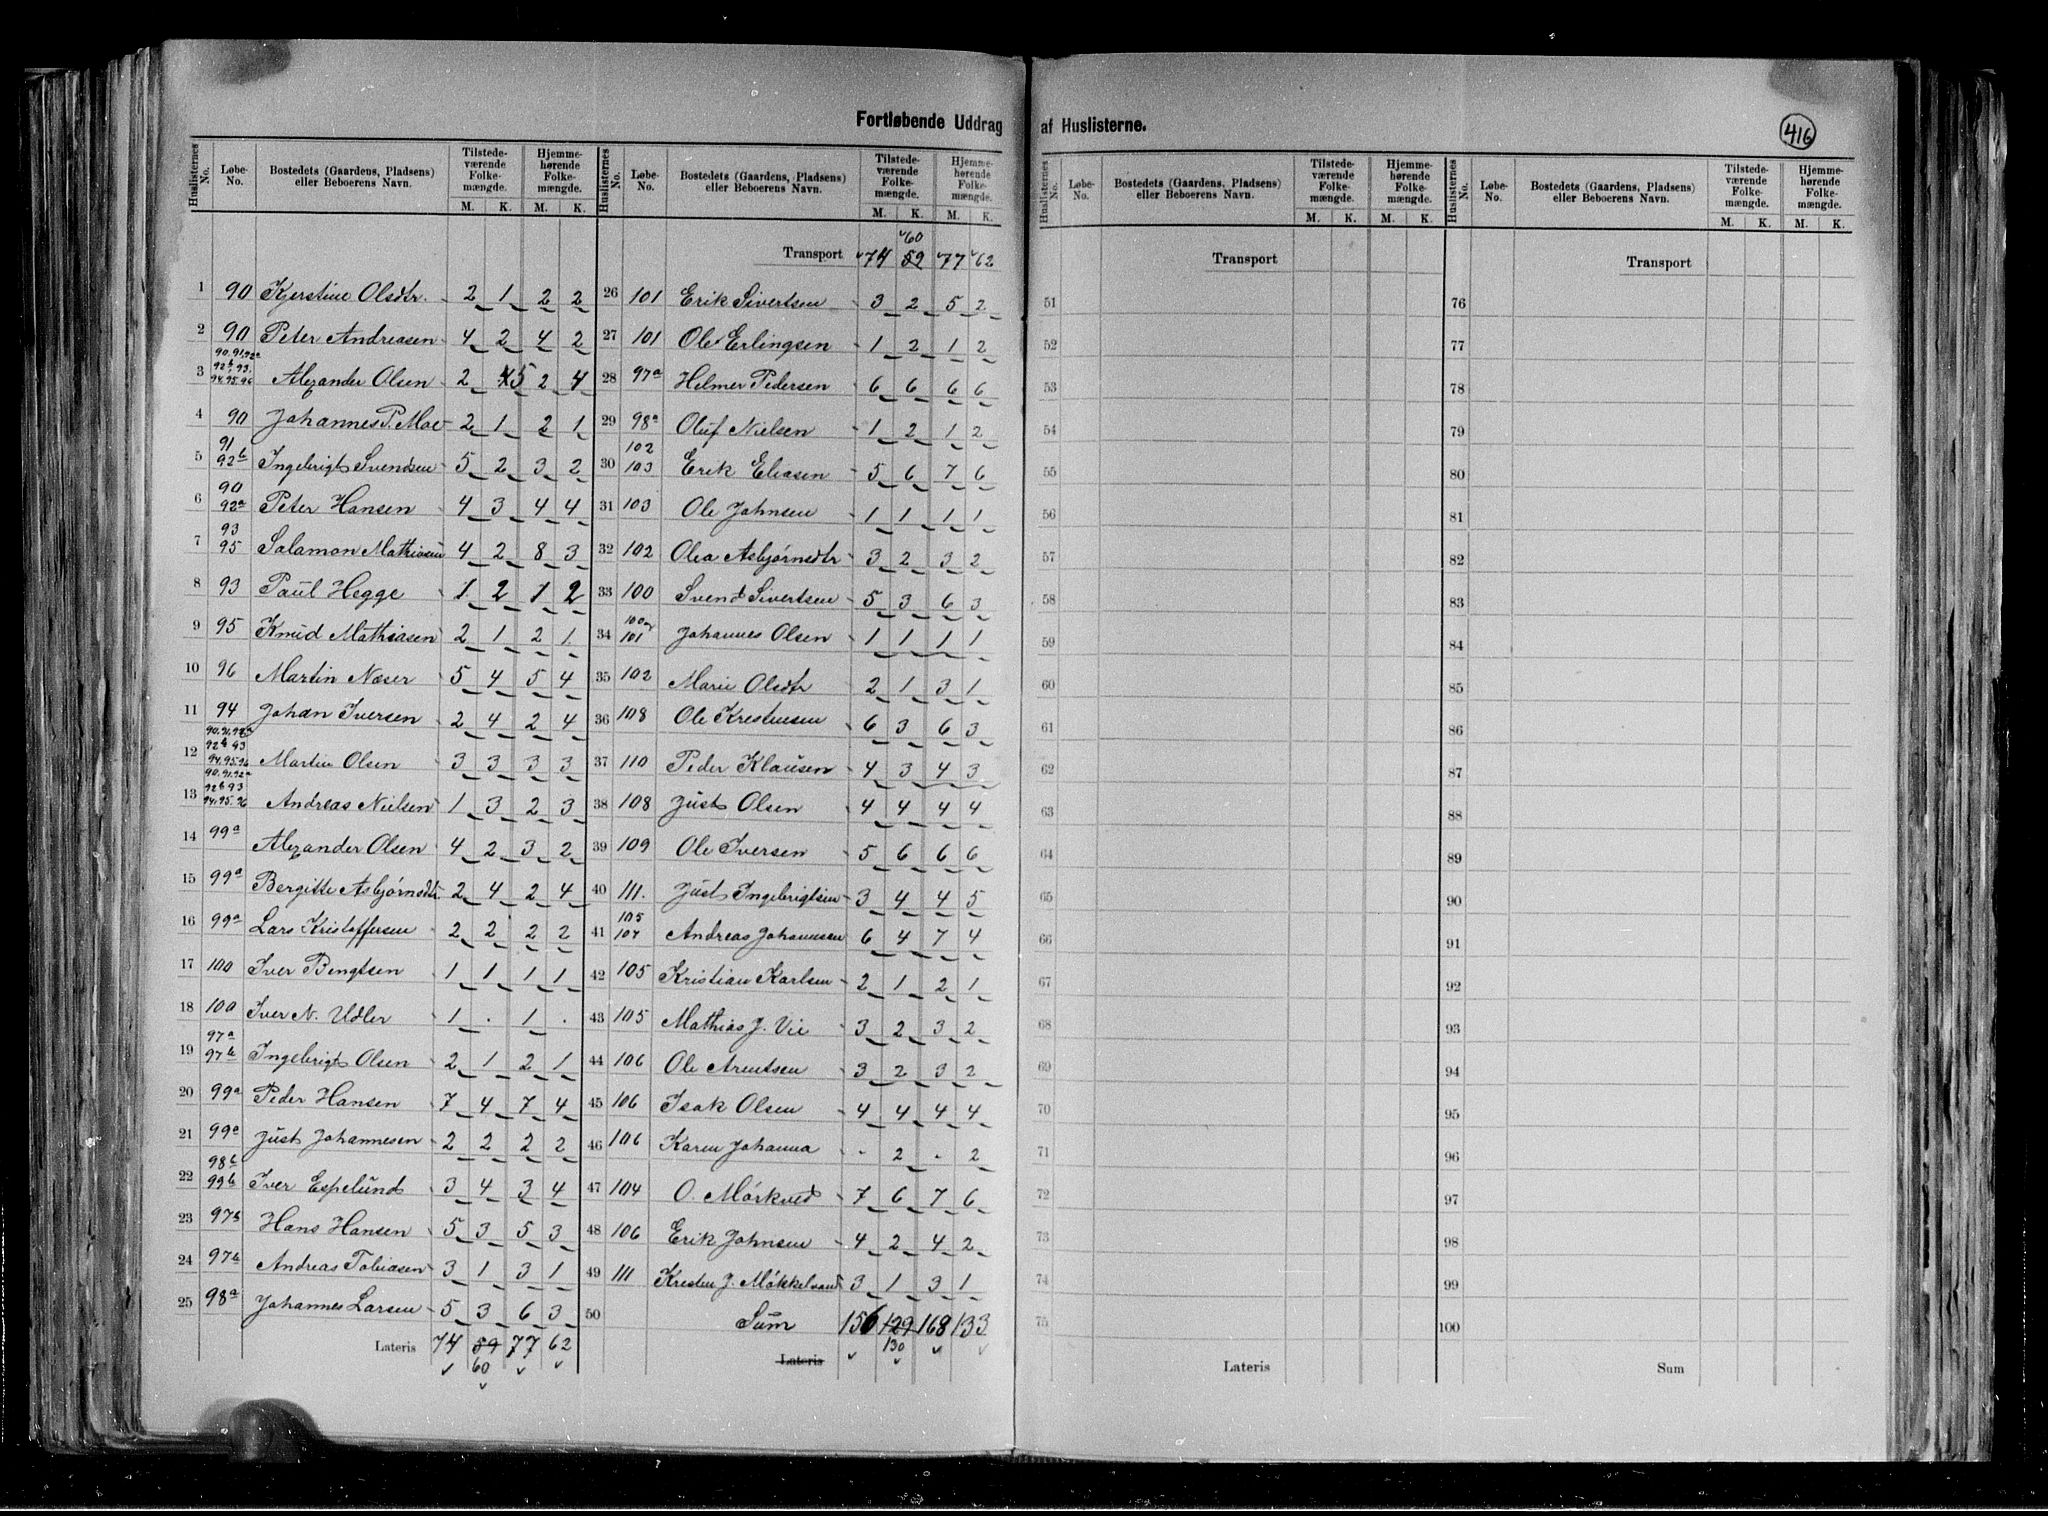 Fortløbende Uddrag af Huslisterne.
416
Huslisternes No. Løbe-No. Bostedets (Gaardens, Pladsens) eller Beboerens Navn. Tilstedeværende Folkemængde. M. K. Hjemmehørende Folkemængde. M. K.
1 90 Kjerstine Olsdtr. 2 1 2 2
2 90 Peter Andreasen 4 2 4 2
3 90.91.92a 92b.93. 94.95.96 Alexander Olsen 2 4 5 2 4
4 90 Johannes P. Moe 2 1 2 1
5 91 92b Ingebrigt Svendsen 5 2 3 2
6 90 92a Peter Hansen 4 3 4 4
7 93 95 Salamon Mathiasen 4 2 8 3
8 93 Paul Hegge 1 2 1 2
9 95 Knud Mathiasen 2 1 2 1
10 96 Martin Næser 5 4 5 4
11 94 Johan Iversen 2 4 2 4
12 90.91.92a 92b 93 94.95.96 Martin Olsen 3 3 3 3
13 90.91.92a 92b 93 94.95.96 Andreas Nielsen 1 3 2 3
14 99a Alexander Olsen 4 2 3 2
15 99a Bergitte Asbjørnsdtr. 2 4 2 4
16 99a Lars Kristoffersen 2 2 2 2
17 100 Iver Bengtsen 1 1 1 1
18 100 Iver N. Udler 1 . 1 .
19 97a 97b Ingebrigt Olsen 2 1 2 1
20 99a Peder Hansen 7 4 7 4
21 99a Just Johannesen 2 2 2 2
22 98b 99b Iver Espelund 3 4 3 4
23 97b Hans Hansen 5 3 5 3
24 97b Andreas Tobiasen 3 1 3 1
25 98a Johannes Larsen 5 3 6 3
Lateris 74 59 77 62
60
Huslisternes No. Løbe-No. Bostedets (Gaardens, Pladsens) eller Beboerens Navn. Tilstedeværende Folkemængde. M. K. Hjemmehørende Folkemængde. M. K.
60
Transport 74 59 77 62
26 101 Erik Sivertsen 3 2 5 2
27 101 Ole Erlingsen 1 2 1 2
28 97a Helmer Pedersen 6 6 6 6
29 98a Oluf Nielsen 1 2 1 2
30 102 103 Erik Eliasen 5 6 7 6
31 103 Ole Johnsen 1 1 1 1
32 102 Olea Asbjørnsdtr 3 2 3 2
33 100 Svend Sivertsen 5 3 6 3
34 100 og 101 Johannes Olsen 1 1 1 1
35 102 Marie Olsdtr 2 1 3 1
36 108 Ole Krestensen 6 3 6 3
37 110 Peder Klausen 4 3 4 3
38 108 Just Olsen 4 4 4 4
39 109 Ole Iversen 5 6 6 6
40 111. Just Ingebrigtsen 3 4 4 5
41 105 107 Andreas Johannesen 6 4 7 4
42 105 Kristian Karlsen 2 1 2 1
43 105 Mathias J. Vie 3 2 3 2
44 106 Ole Arentsen 3 2 3 2
45 106 Isak Olsen 4 4 4 4
46 106 Karen Johanna - 2 - 2
47 104 O. Mørkved 7 6 7 6
48 106 Erik Johnsen 4 2 4 2
49 111 Kresten J. Møkkelvand 3 1 3 1
50 Sum 156 129 168 133
Lateris 130
Huslisternes No. Løbe-No. Bostedets (Gaardens, Pladsens) eller Beboerens Navn. Tilstedeværende Folkemængde. M. K. Hjemmehørende Folkemængde. M. K.
Transport
51
52
53
54
55
56
57
58
59
60
61
62
63
64
65
66
67
68
69
70
71
72
73
74
75
Lateris
Huslisternes No. Løbe-No. Bostedets (Gaardens, Pladsens) eller Beboerens Navn. Tilstedeværende Folkemængde. M. K. Hjemmehørende Folkemængde. M. K.
Transport
76
77
78
79
80
81
82
83
84
85
86
87
88
89
90
91
92
93
94
95
96
97
98
99
100
Sum